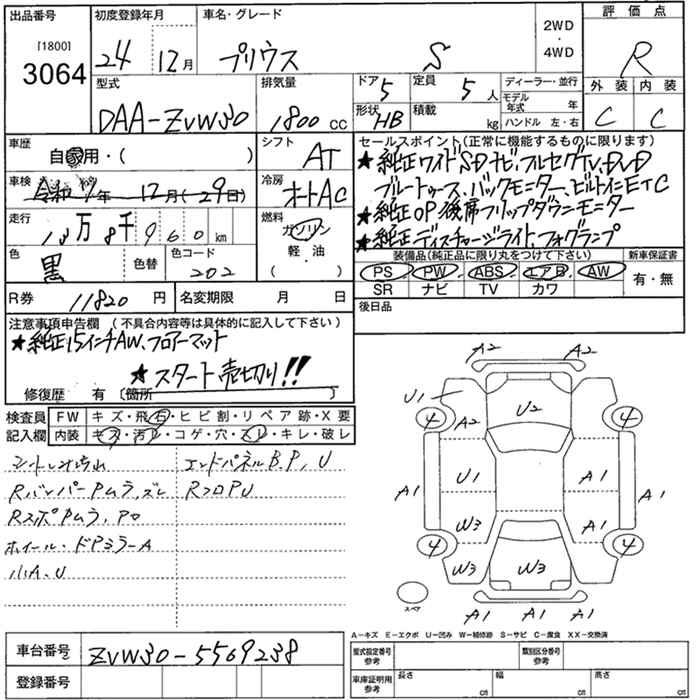 出品番号 初度登録年月 車名・グレード 2WD・4WD 評価点
[1800]
3064 24 12月 プリウス S R
型式 排気量 ドア 5 定員 5人 ディーラー・並行 外装 内装
モデル年式 年
DAA-ZVW30 1800 CC 形状 HB 積載 kg ハンドル 左・右 C C
車歴 シフト セールスポイント(正常に機能するものに限ります)
自家用・( ) AT ★純正ワイドSDナビ、フルセグTV、DVD
車検 冷房 ブルートゥース、バックモニター、ビルトインETC
令和 7年 12月(29日) オートAC ★純正OP後席フリップダウンモニター
走行 燃料 ★純正ディスチャージライト、フォグランプ
万 8千960km ガソリン 装備品(純正品に限り丸をつけて下さい) 新車保証書
軽・油 PS PW ABS エアB AW 有・無
色 色替 色コード SR ナビ TV カワ
黒 202
R券 11820円 名変期限 月 日 後日品
注意事項申告欄 (不具合内容等は具体的に記入して下さい)
★純正15インチAW、フロアーマット
★スタート売切り!!
修復歴 有 〔箇所 〕
検査員記入欄 FW キズ・飛石・ヒビ割・リペア跡・X要
内装 キズ・汚レ・コゲ・穴・スレ・キレ・破レ
シートしみ汚れ エンドパネルB.P,U
RバンパーPムラ,ズレ RフロPU
RスポPムラ,
ホイール・ドアミラーA
小A、U
A2 A2
U1 U2
4 A2 4
U1 A1
A1 A1
W3 A1
4 W3 W3 4
スペア A1 A1 A1
A-キズ E-エクボ U-凹み W-補修跡 S-サビ C-腐食 XX-交換済
車台番号 ZVW30-5569238 型式指定番号参考 類別区分番号参考
登録番号 車庫証明用参考 長さ cm 幅 cm 高さ cm